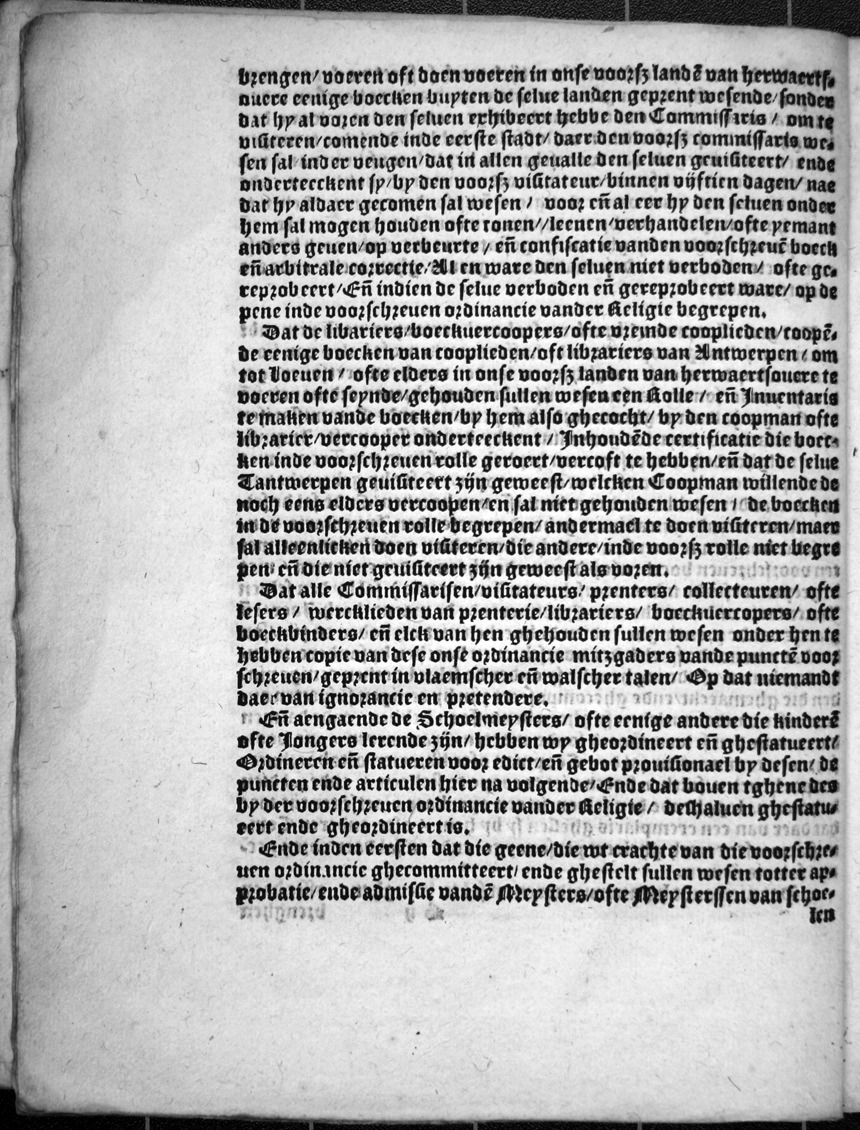 brengen/ voeren oft doen voeren in onse voorsz landē van herwaertſ-
ouere eenige boecken buyten de selue landen geprent wesende/ sonder
dat hy al voren den seluen exhibeert hebbe den Commissaris / om te
visiteren/comende inde eerste stadt/ daer den voorsz commissaris we-
sen sal/ inder veugen/dat in allen geualle den seluen geuisiteert/ ende
onderteeckent sy/by den voorsz visitateur/binnen vijftien dagen/ nae
dat hy aldaer gecomen sal wesen / voor eñ al eer hy den seluen onder
hem sal mogen houden ofte tonen//leenen/verhandelen/ofte yemant
anders geuen/op verbeurte / eñ confiscatie vanden voorschreuē boeck
eñ arbitrale correctie/Al en ware den seluen niet verboden/ ofte ge-
reprobeert/Eñ indien de selue verboden eñ gereprobeert ware/ op de
pene inde voorschreuen ordinancie vander Religie begrepen.
Dat de libariers/boeckuercoopers/ofte vremde cooplieden/coopē-
de eenige boecken van cooplieden/oft librariers van Antwerpen / om
tot Loeuen / ofte elders in onse voorsz landen van herwaertsouere te
voeren ofte seynde/gehouden sullen wesen een Rolle / eñ Inuentaris
te maken vande boecken/by hem also ghecocht/ by den coopman ofte
librarier/vercooper onderteeckent / Inhoudēde certificatie die boec-
ken inde voorschreuen rolle geroert/vercoft te hebben/eñ dat de selue
Tantwerpen geuisiteert zijn geweest/welcken Coopman willende de
noch eens elders vercoopen/en sal niet gehouden wesen / de boecken
in de voorschreuen rolle begrepen/ andermael te doen visiteren/maer
sal alleenlicken doen visiteren/die andere/inde voorsz rolle niet begre
pen/ eñ die niet geuisiteert zijn geweest als voren.
Dat alle Commissarisen/visitateurs/ prenters/ collecteuren/ ofte
lesers / wercklieden van prenterie/librariers/ boeckuercopers/ ofte
boeckbinders/ eñ elck van hen ghehouden sullen wesen onder hen te
hebben copie van dese onse ordinancie mitzgaders vande punctē voor
schreuen/geprent in vlaemscher eñ walscher talen/ Op dat niemandt
daer van ignorancie en pretendere.
Eñ aengaende de Schoelmeysters/ ofte eenige andere die kinderē
ofte Jongers lerende zijn/ hebben wy gheordineert eñ ghestatueert/
Ordineren eñ statueren voor edict/eñ gebot prouisionael by desen/ de
puncten ende articulen hier na volgende/Ende dat bouen tghene des
by der voorschreuen ordinancie vander Religie / deshaluen ghestatu-
eert ende gheordineert is.
Ende inden eersten dat die geene/die wt crachte van die voorschre-
uen ordinancie ghecommitteert/ ende ghestelt sullen wesen totter ap-
probatie/ende admissie vandē Meysters/ofte Meysterssen van schoe-
len